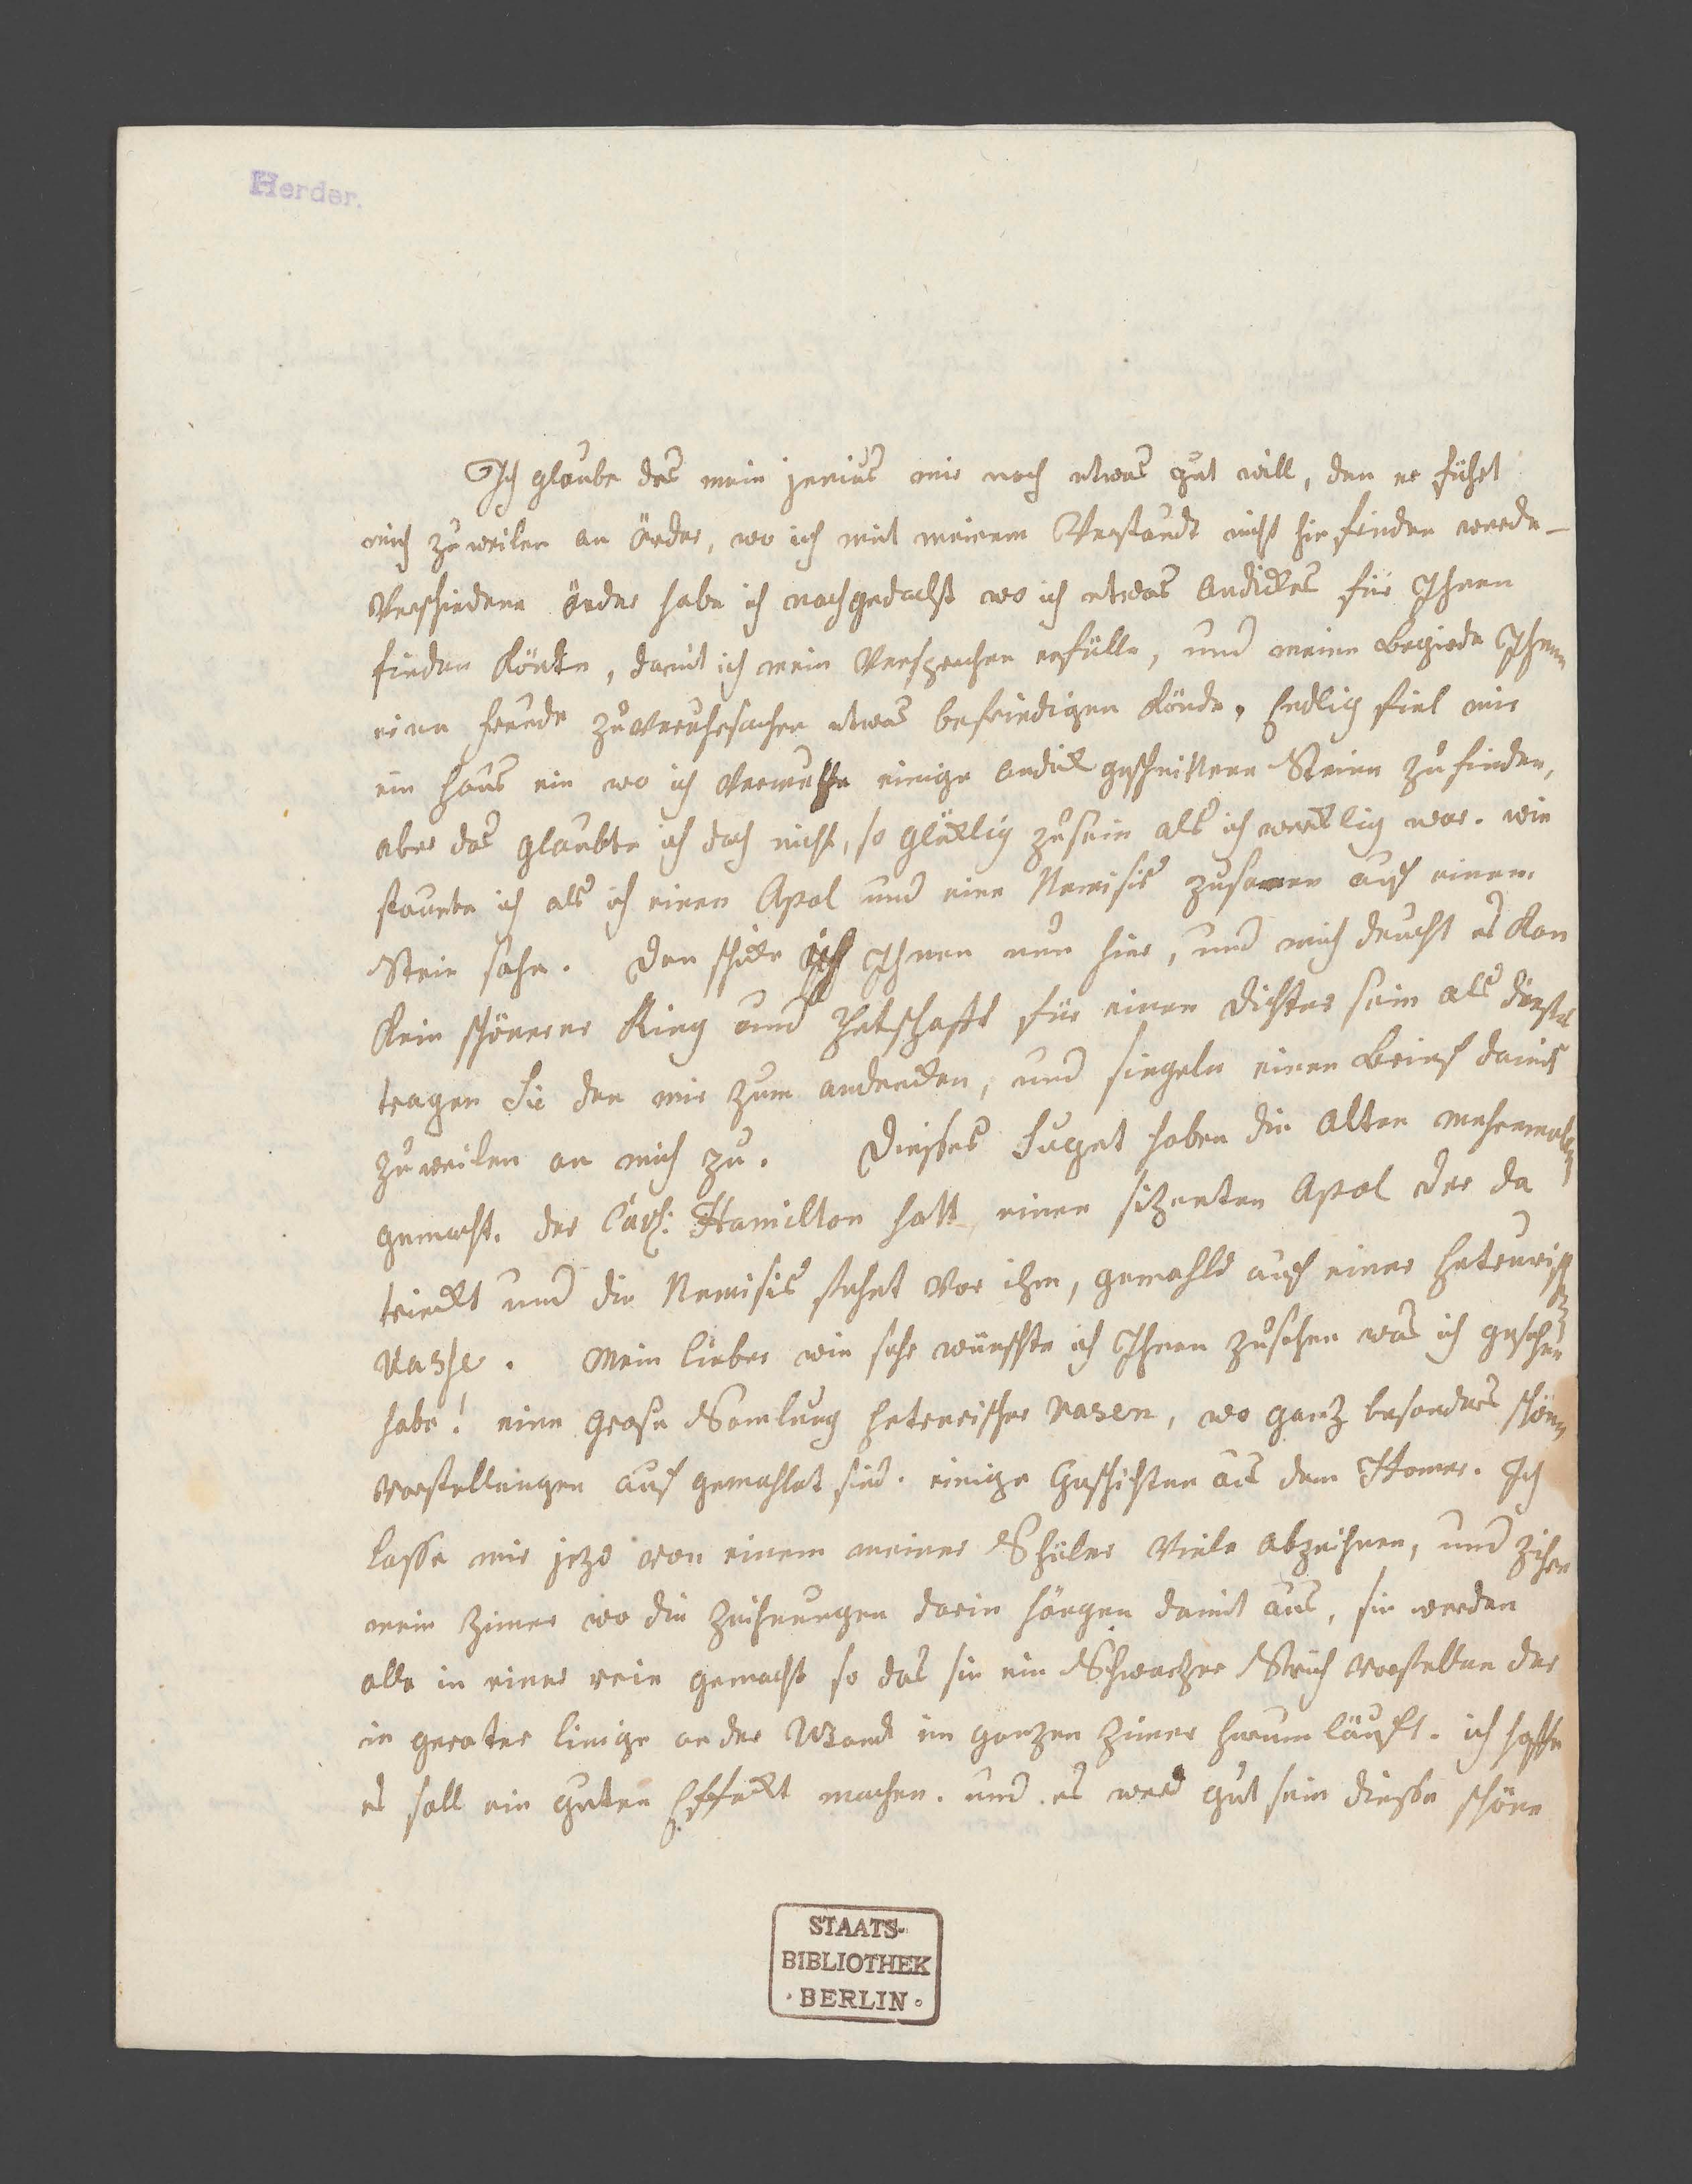 Herder.
Ich glaube das mein jenius mir noch etwas gut will, den er führt
mich zuweilen an örder, wo ich mit meinem Verstandt nicht hin finden werde –
Verschiedene örder habe ich nachgedacht wo ich etwas andickes für Ihnen
finden könte, damit ich mein Versprechen erfülle, und meine Begirde Ihnen
eine freude zuveruhrsachen etwas befriedigen könde. Endlich fiel mir
ein Haus ein wo ich vermuhte einige andick geschnittene Steine zufinden,
aber das glaubte ich doch nicht, so glücklig zusein als ich wercklig war. wie
staunte ich als ich einen Apol und eine Nemisis zusamen auf einem
Stein sahe. Den schicke ich Ihnen nun hier, und mich deucht es kan
kein schönerer Ring und Petschafft für einen dichter sein als dießer
tragen Sie den mir zum andencken, und siegeln einen Brief damit
zuweilen an mich zu. Dießes Suget haben die Alten mehrmals
gemacht. der Cav: Hamilton hatt einen sitzenten Apol der da
trinckt und die Nemisis stehet vor ihm, gemahld auf einer hetrurisch
Vashe. Mein lieber wie sehr wünschte ich Ihnen zusehen was ich gesehen
habe! eine grose Samlung hetrurischer Vasen, wo ganz besonders schöne
vorstellungen auf gemahlet sind. einige Geschichten aus dem Homer. Ich
lasse mir jezo von einem meiner Schüler viele abzeichnen, und zihre
mein Zimer wo die Zeichnungen darin hängen damit aus, sie werden
alle in einer reie gemacht so das sie ein Schwarzen Strich vorstellen der
in gerater linige an der Wand im ganzen Zimer herum läuft. ich hoffe
es soll ein guten Effeckt machen. und es werd gut sein dieße schöne
STAATS-
BIBLIOTHEK
· BERLIN ·